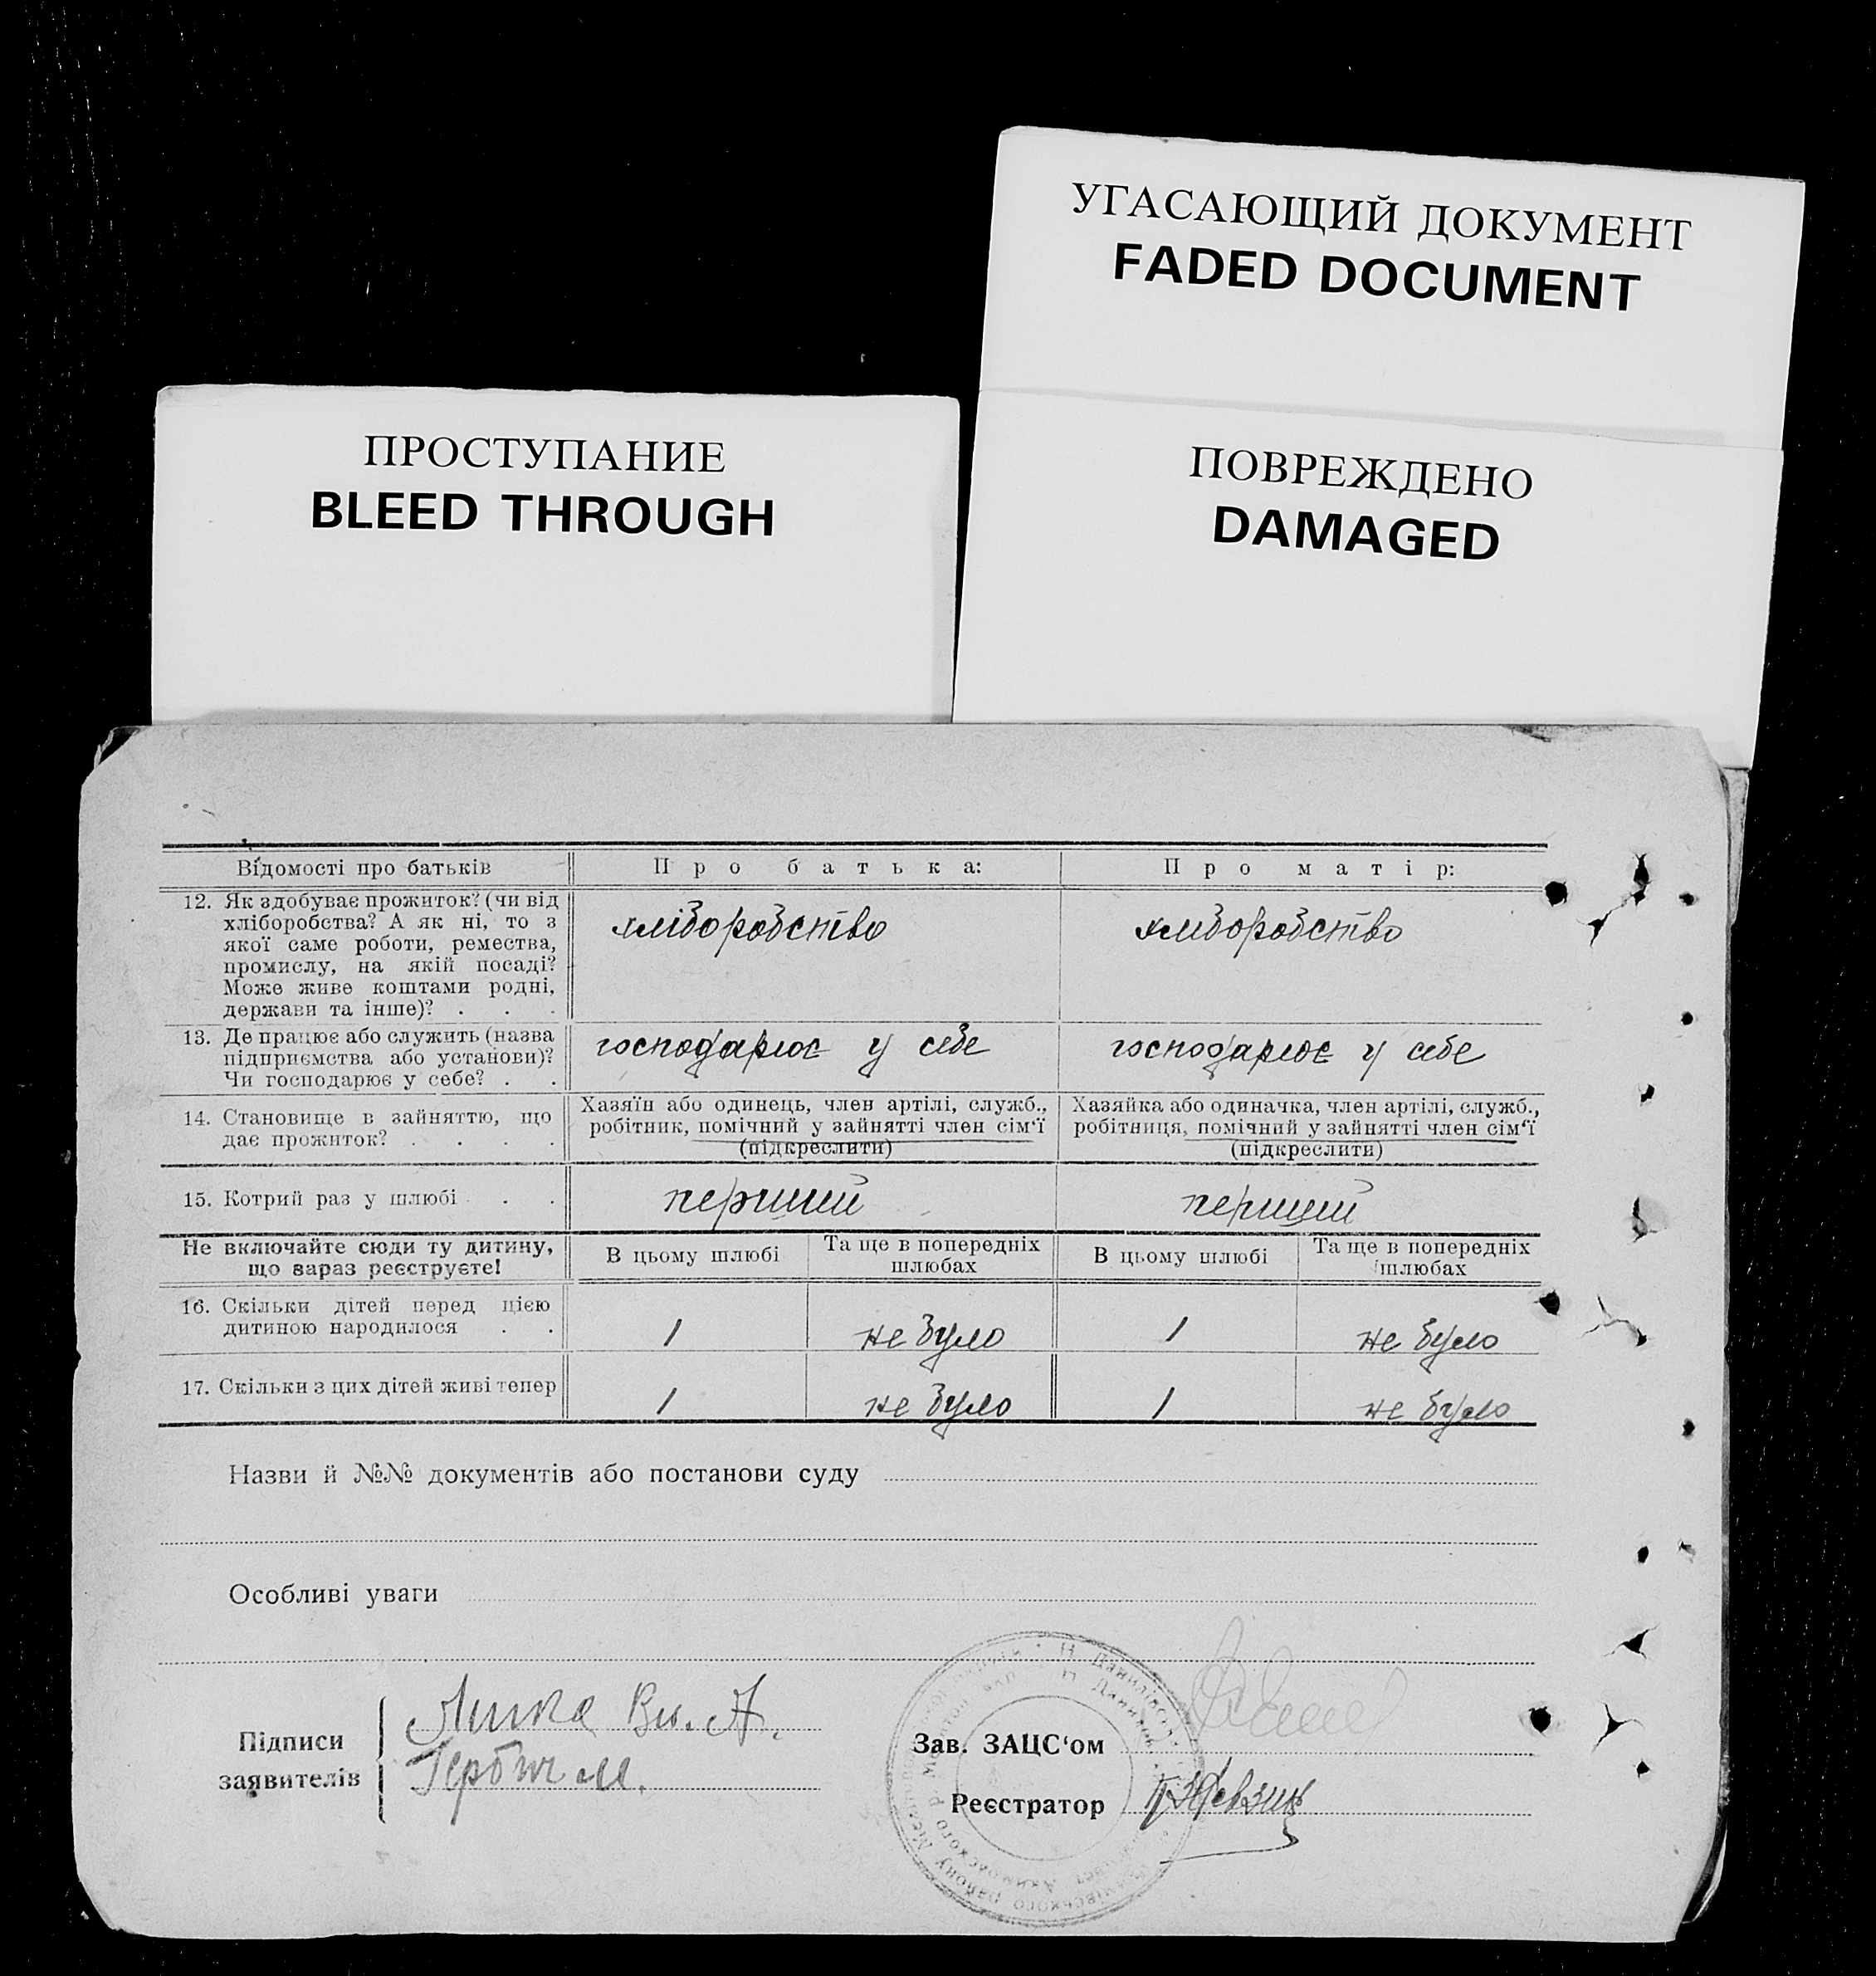 УГАСАЮЩИЙ ДОКУМЕНТ
FADED DOCUMENT
ПРОСТУПАНИЕ
BLEED THROUGH
ПОВРЕЖДЕНО
DAMAGED
Відомості про батьків
Про батька:
Про матір:
12. Як здобуває прожиток? (чи від
хліборобства? А як ні, то з
якої саме роботи, ремества,
промислу, на якій посаді?
Може живе коштами родні,
держави та інше)? . . .
хліборобство
хліборобство
13. Де працює або служить (назва
підприємства або установи)?
Чи господарює у себе? . .
господарює у себе
господарює у себе
14. Становище в зайняттю, що
дає прожиток? . . . .
Хазяїн або одинець, член артілі, служб.,
робітник, помічний у зайнятті член сім'ї
(підкреслити)
Хазяйка або одиначка, член артілі, служб.,
робітниця, помічний у зайнятті член сім'ї
(підкреслити)
15. Котрий раз у шлюбі . .
перший
перший
Не включайте сюди ту дитину,
що вараз реєструєте!
В цьому шлюбі
Та ще в попередніх
шлюбах
В цьому шлюбі
Та ще в попередніх
шлюбах
16. Скільки дітей перед цією
дитиною народилося . .
1
не було
1
не було
17. Скільки з цих дітей живі тепер
1
не було
1
не було
Назви й №№ документів або постанови суду
Особливі уваги
Підписи
заявителів
Зав. ЗАЦС'ом
Реєстратор